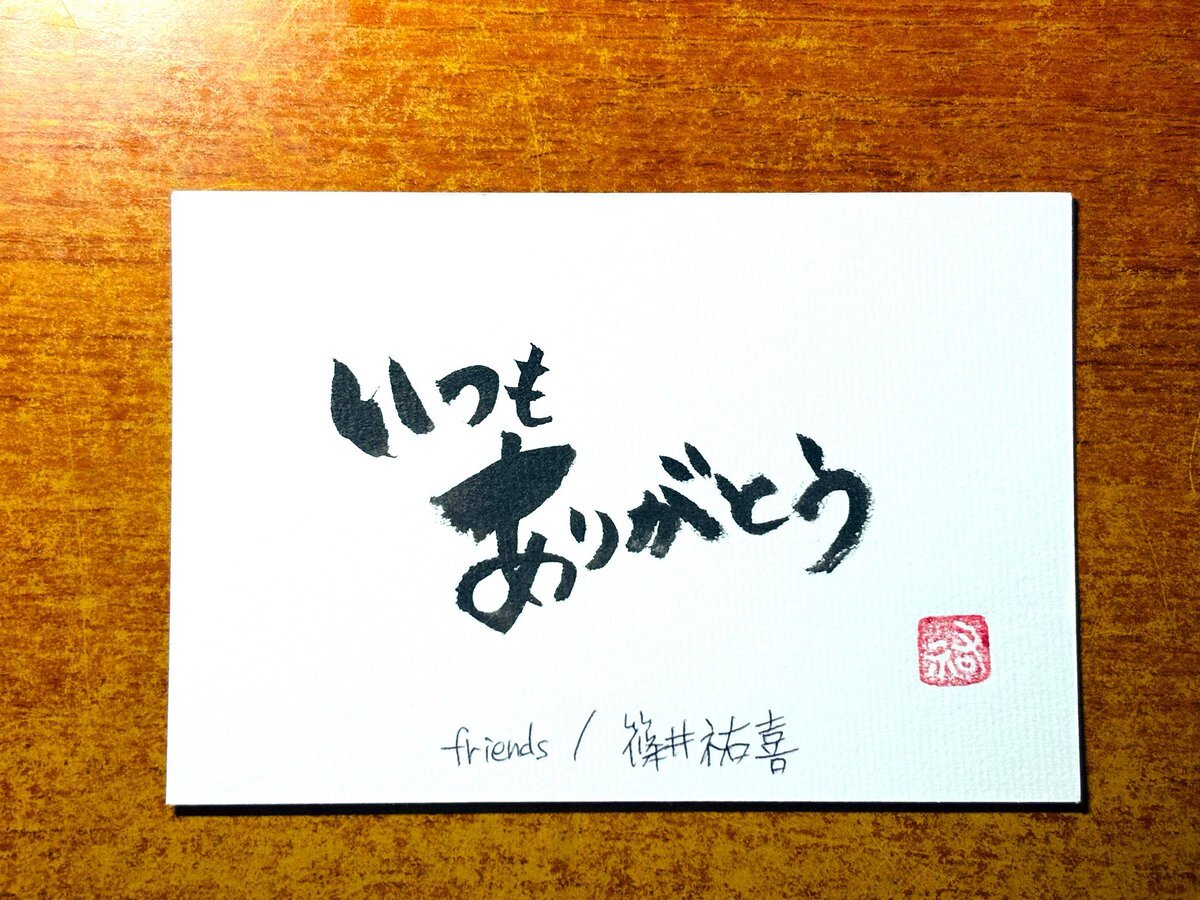 いつも
ありがとう
祐
friends / 篠井祐喜